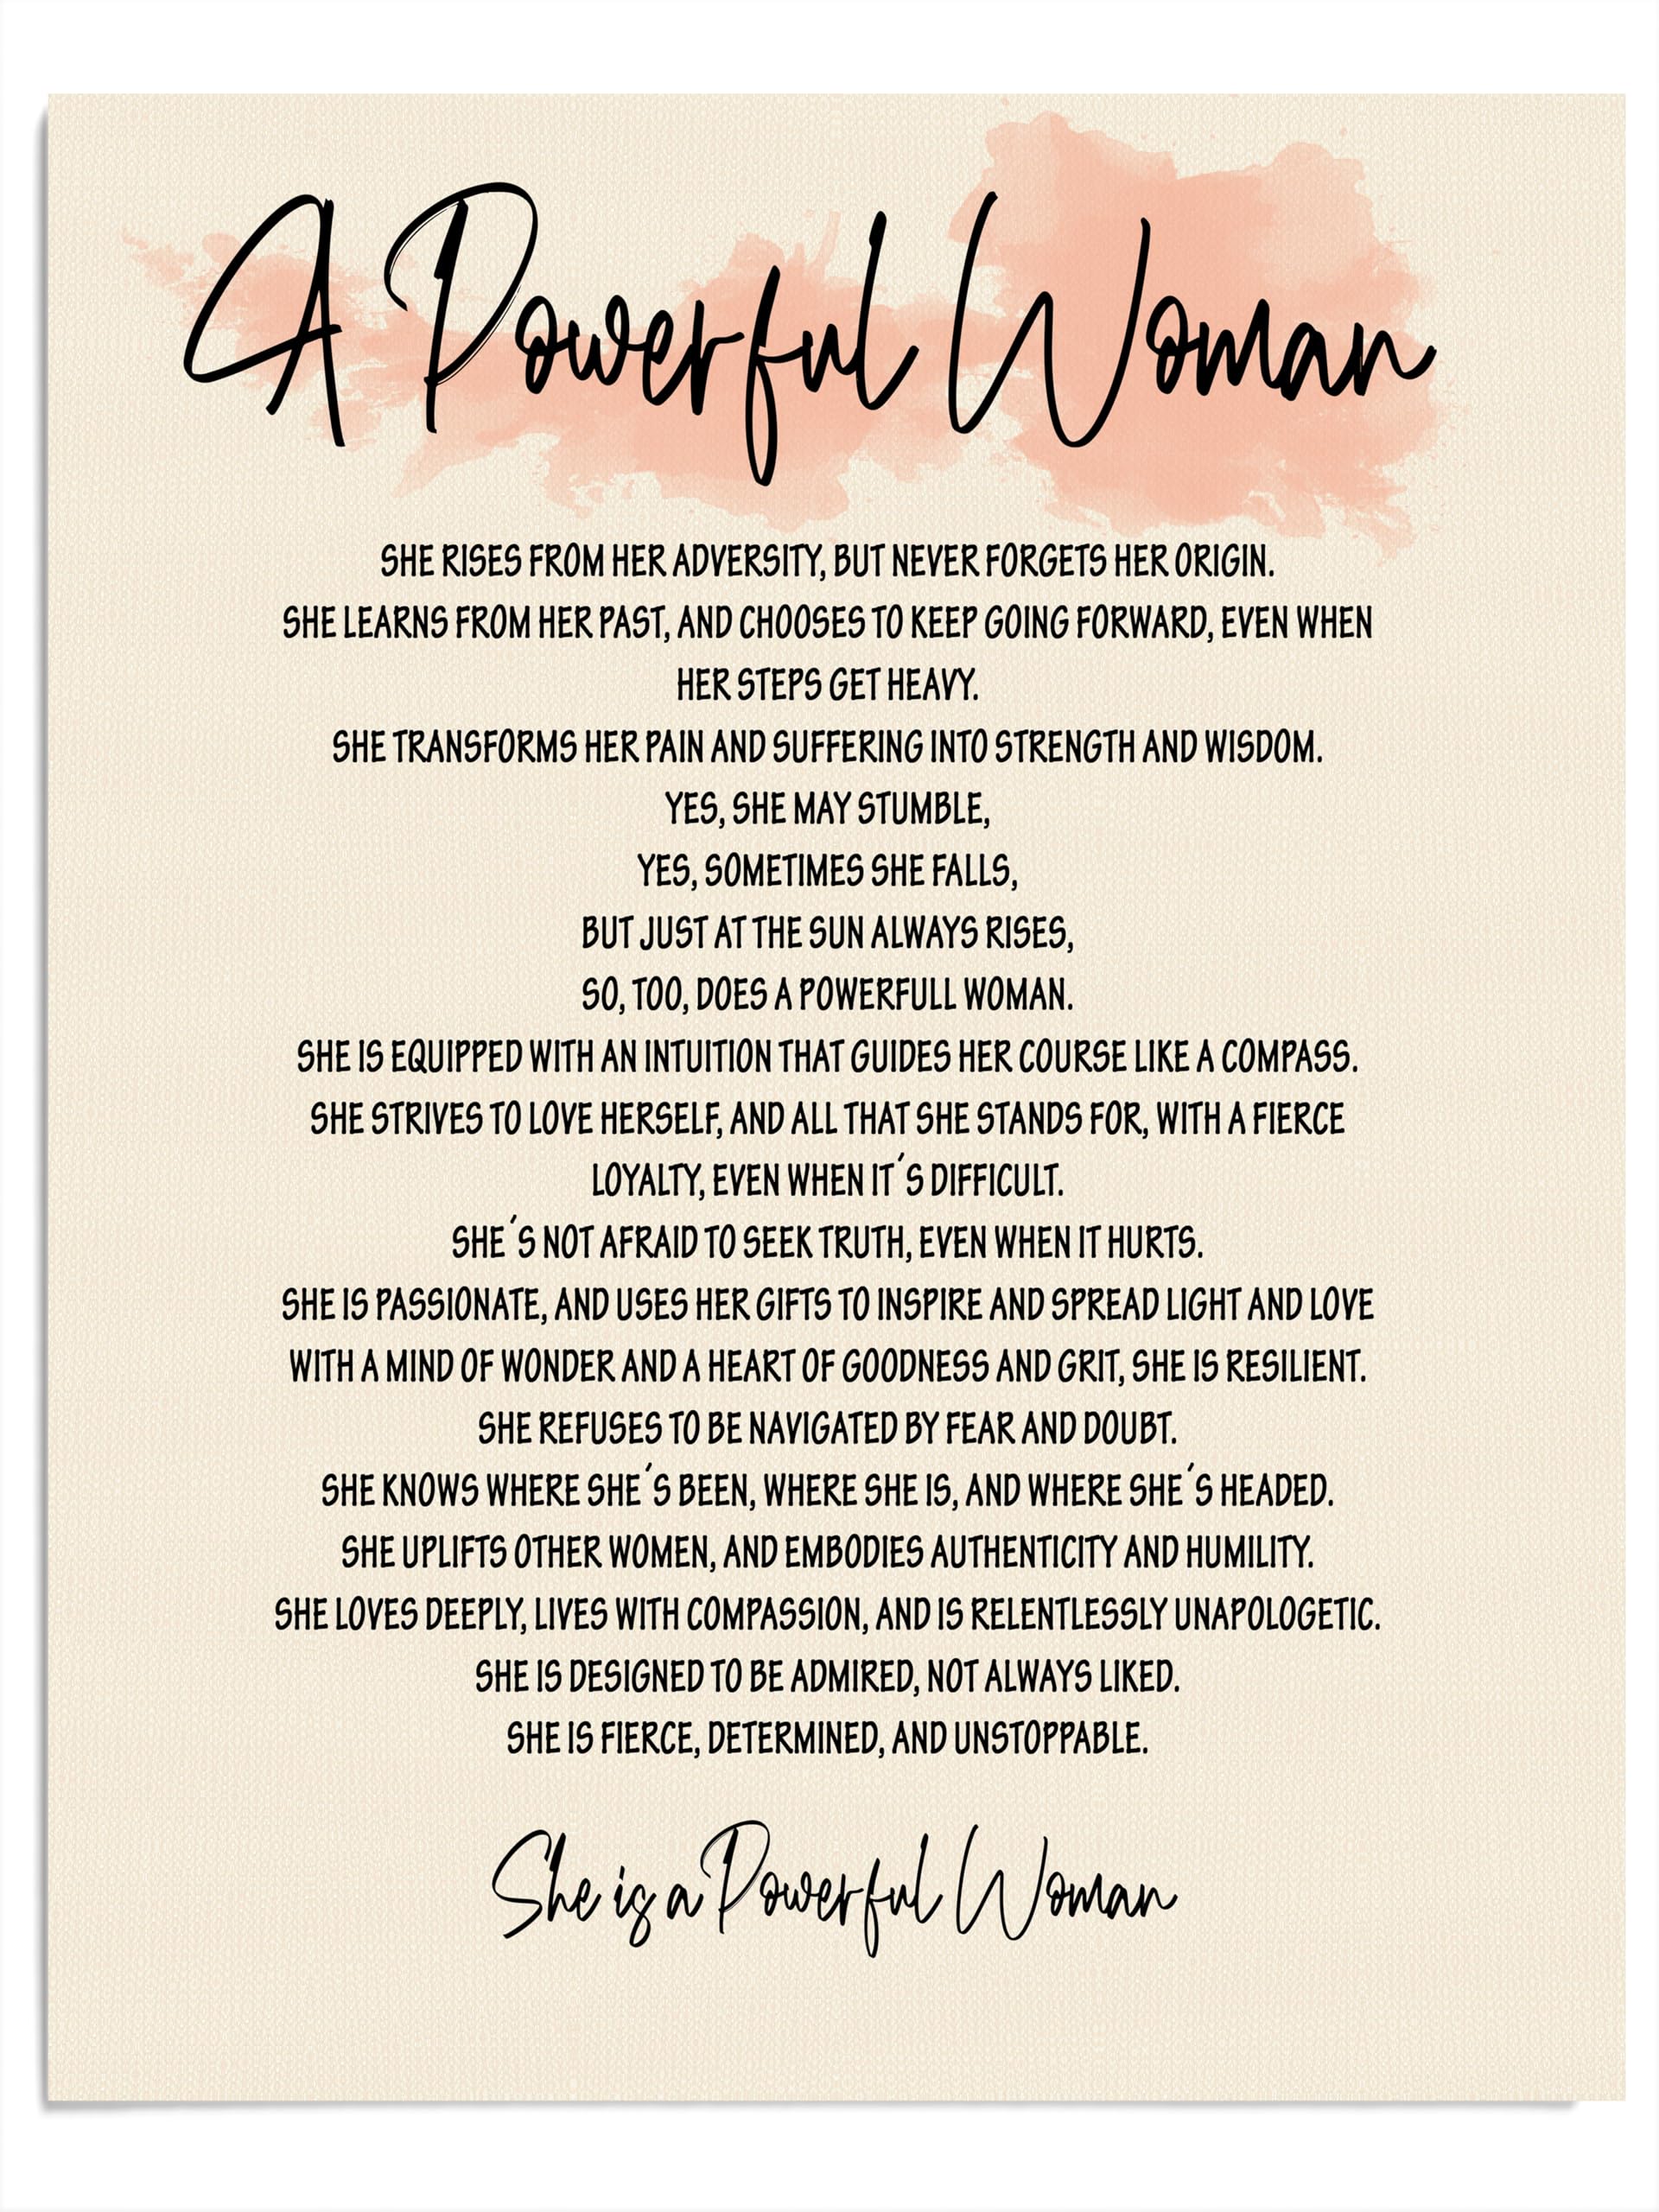 A Powerful Woman
SHE RISES FROM HER ADVERSITY, BUT NEVER FORGETS HER ORIGIN.
SHE LEARNS FROM HER PAST, AND CHOOSES TO KEEP GOING FORWARD, EVEN WHEN
HER STEPS GET HEAVY.
SHE TRANSFORMS HER PAIN AND SUFFERING INTO STRENGTH AND WISDOM.
YES, SHE MAY STUMBLE,
YES, SOMETIMES SHE FALLS,
BUT JUST AT THE SUN ALWAYS RISES,
SO, TOO, DOES A POWERFULL WOMAN.
SHE IS EQUIPPED WITH AN INTUITION THAT GUIDES HER COURSE LIKE A COMPASS.
SHE STRIVES TO LOVE HERSELF, AND ALL THAT SHE STANDS FOR, WITH A FIERCE
LOYALTY, EVEN WHEN IT´S DIFFICULT.
SHE´S NOT AFRAID TO SEEK TRUTH, EVEN WHEN IT HURTS.
SHE IS PASSIONATE, AND USES HER GIFTS TO INSPIRE AND SPREAD LIGHT AND LOVE
WITH A MIND OF WONDER AND A HEART OF GOODNESS AND GRIT, SHE IS RESILIENT.
SHE REFUSES TO BE NAVIGATED BY FEAR AND DOUBT.
SHE KNOWS WHERE SHE´S BEEN, WHERE SHE IS, AND WHERE SHE´S HEADED.
SHE UPLIFTS OTHER WOMEN, AND EMBODIES AUTHENTICITY AND HUMILITY.
SHE LOVES DEEPLY, LIVES WITH COMPASSION, AND IS RELENTLESSLY UNAPOLOGETIC.
SHE IS DESIGNED TO BE ADMIRED, NOT ALWAYS LIKED.
SHE IS FIERCE, DETERMINED, AND UNSTOPPABLE.
She is a Powerful Woman